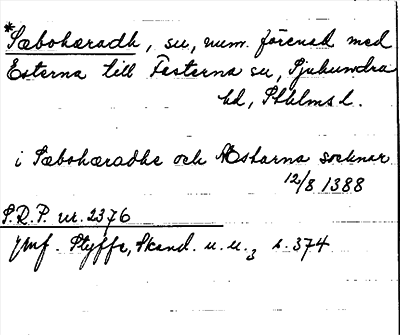 *Sæbohæradh, su, num. förenad med
Esterna till Festerna su, Sjuhundra
hd, Sthlms l.
i Sæbohæradhe och Æstarna socknar
12/8 1388
S.R.P. nr. 2376
jmf. Styffe, Skand. u. u., s. 374